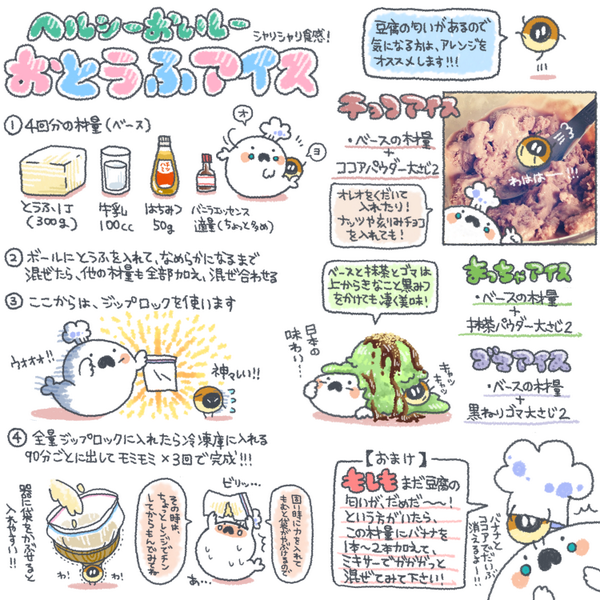 ヘルシーおいしー
シャリシャリ食感!
おとうふアイス
① 4回分の材量(ベース)
オ
ヨ
とうふ1丁
(300g)
牛乳
100cc
はちみつ
50g
バニラエッセンス
適量(ちょっと多め)
② ボールにとうふを入れて、なめらかになるまで
混ぜたら、他の材量も全部加え、混ぜ合わせる
③ ここからは、ジップロックを使います
ウオオオ!!
神々しい!!
④ 全量ジップロックに入れたら冷凍庫に入れる
90分ごとに出してモミモミ×3回で完成!!!
器に袋をかぶせると
入れやすい!!
わ!
わ!
その時は、
ちょっとレンジでチン
してからもんでみてね
ビリッ…
固い時に力を入れて
もむと袋がやぶけるので
あ…
豆腐の匂いがあるので
気になる方は、アレンジを
オススメします!!!
チョコアイス
・ベースの材量
+
ココアパウダー大さじ2
オレオをくだいて
入れたり!
ナッツや刻みチョコ
を入れても!
わははーー!!!
ベースと抹茶とゴマは
上からきなこと黒みつ
をかけても凄く美味!
日本の
味わい…
キャッ
キャッ
まっちゃアイス
・ベースの材量
+
抹茶パウダー大さじ2
ゴマアイス
・ベースの材量
+
黒ねりゴマ大さじ2
【おまけ】
もしもまだ豆腐の
匂いが、だめだ〜〜!
という方がいたら、
この材量にバナナを
1本〜2本加えて、
ミキサーでガガガっと
混ぜてみて下さい!
バナナと
ココアでだいぶ
消えるよー!